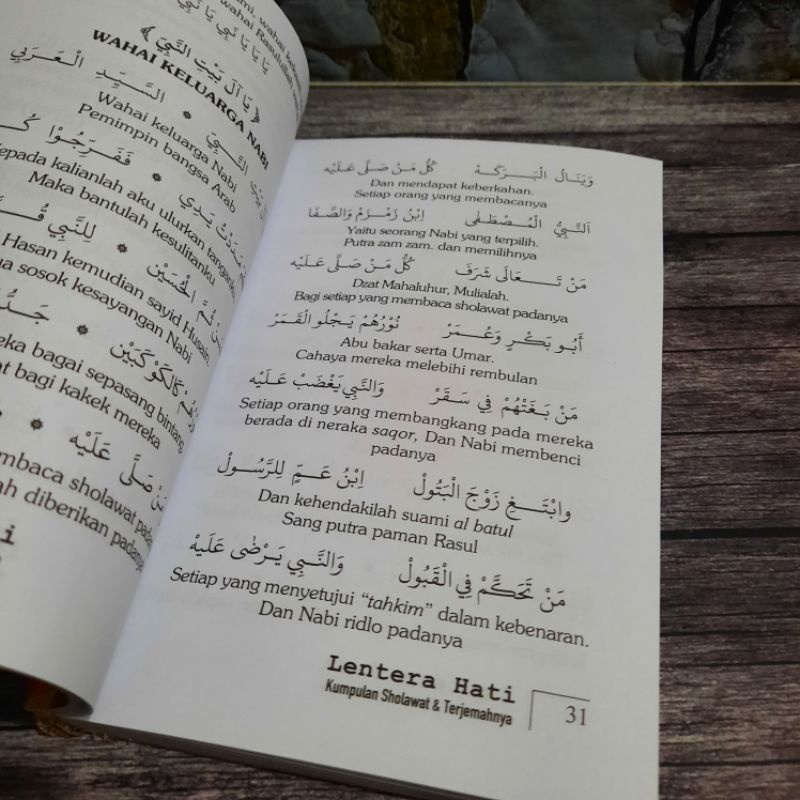 يَا يَا يَا نَبِي يَا نَبِي
﴿ يَا آلَ بَيْتِ النَّبِيّ ﴾
WAHAI KELUARGA NABI
النَّبِي * السَّيِّدِ الْعَرَبِي
Wahai keluarga Nabi
Pemimpin bangsa Arab
مَدَدْتُ يَدِي * فَفَرِّجُوْا
kepada kalianlah aku ulurkan tanganku
Maka bantulah kesulitanku
ثُمَّ الْحُسَيْن * لِلنَّبِي
Hasan kemudian sayid Husain,
sosok kesayangan Nabi
كَالْكَوْكَبَيْن *
bagai sepasang bintang
bagi kakek mereka
صَلَّى عَلَيْه *
membaca sholawat padanya
diberikan padanya
وَيَنَالُ الْبَرَكَهْ كُلُّ مَنْ صَلَّى عَلَيْه
Dan mendapat keberkahan.
Setiap orang yang membacanya
اَلنَّبِيُّ الْمُصْطَفٰى اِبْنُ زَمْزَمْ وَالصَّفَا
Yaitu seorang Nabi yang terpilih.
Putra zam zam. dan memilihnya
مَنْ تَعَالَى شَرَفَ كُلُّ مَنْ صَلَّى عَلَيْه
Dzat Mahaluhur, Mulialah.
Bagi setiap yang membaca sholawat padanya
أَبُو بَكْرٍ وَعُمَرْ نُوْرُهُمْ يَجْلُو الْقَمَرْ
Abu bakar serta Umar.
Cahaya mereka melebihi rembulan
مَنْ بَغَتْهُمْ فِي سَقَرْ وَالنَّبِي يَغْضَبْ عَلَيْه
Setiap orang yang membangkang pada mereka
berada di neraka saqor, Dan Nabi membenci
padanya
وابْتَغِ زَوْجَ الْبَتُولْ اِبْنُ عَمٍّ لِلرَّسُولْ
Dan kehendakilah suami al batul
Sang putra paman Rasul
مَنْ تَحَكَّمْ فِي الْقَبُولْ وَالنَّبِي يَرْضٰى عَلَيْه
Setiap yang menyetujui “tahkim” dalam kebenaran.
Dan Nabi ridlo padanya
Lentera Hati
Kumpulan Sholawat & Terjemahnya
31